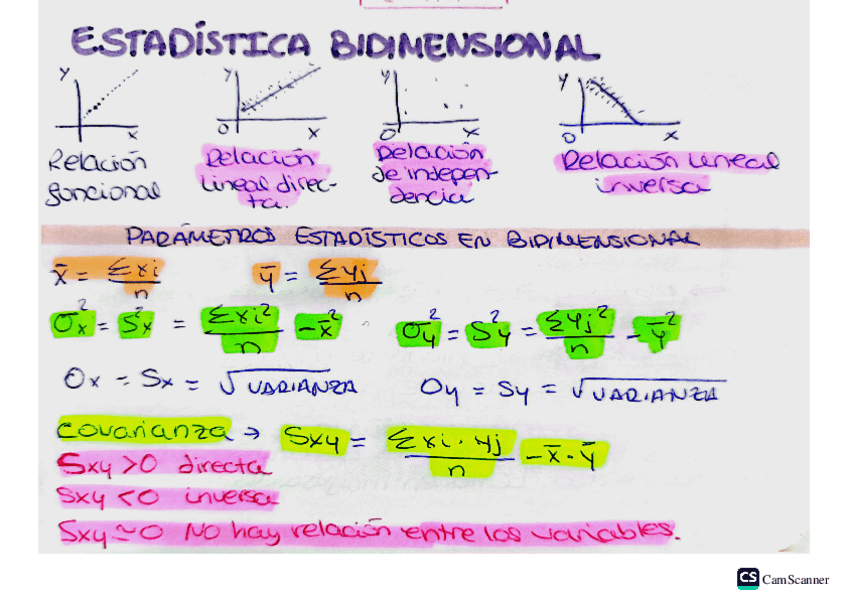 ESTADÍSTICA BIDIMENSIONAL
y x
y O x
y O x
y O x
Relación funcional
Relación lineal directa.
Relación de independencia
Relación lineal inversa
PARÁMETROS ESTADÍSTICOS EN BIDIMENSIONAL
x̄ = Σxi / n
ȳ = Σyj / n
σx² = Sx² = Σxi² / n - x̄²
σy² = Sy² = Σyj² / n - ȳ²
σx = Sx = √VARIANZA
σy = Sy = √VARIANZA
covarianza → Sxy = Σxi · yj / n - x̄ · ȳ
Sxy > 0 directa
Sxy < 0 inversa
Sxy ≃ 0 No hay relación entre las variables.
CS CamScanner